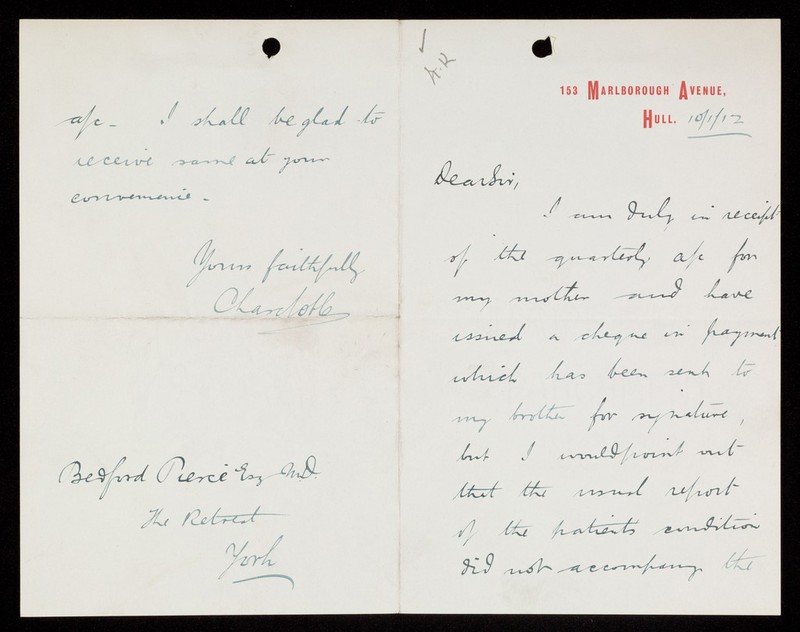 153 MARLBOROUGH AVENUE,
HULL. 10/1/12
Dear Sir,
I am duly in receipt
of the quarterly a/c for
my mother and have
issued a cheque in payment
which has been sent to
my brother for signature,
but I would point out
that the usual report
of the patients condition
did not accompany the
a/c - I shall be glad to
receive same at your
convenience.
Yours faithfully
Bedford Pierce Esq M.D.
The Retreat
York